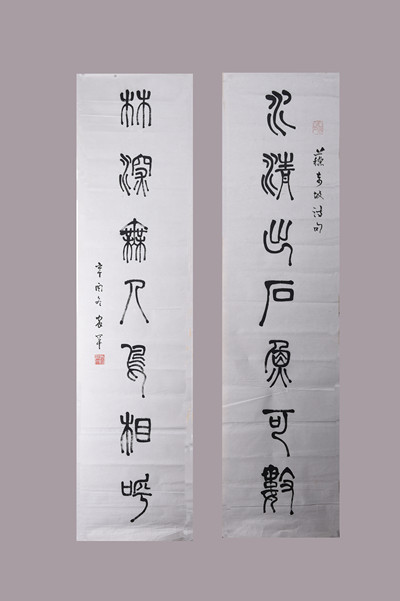 蘇東坡詩句
水清出石魚可數
林深無人鳥相呼